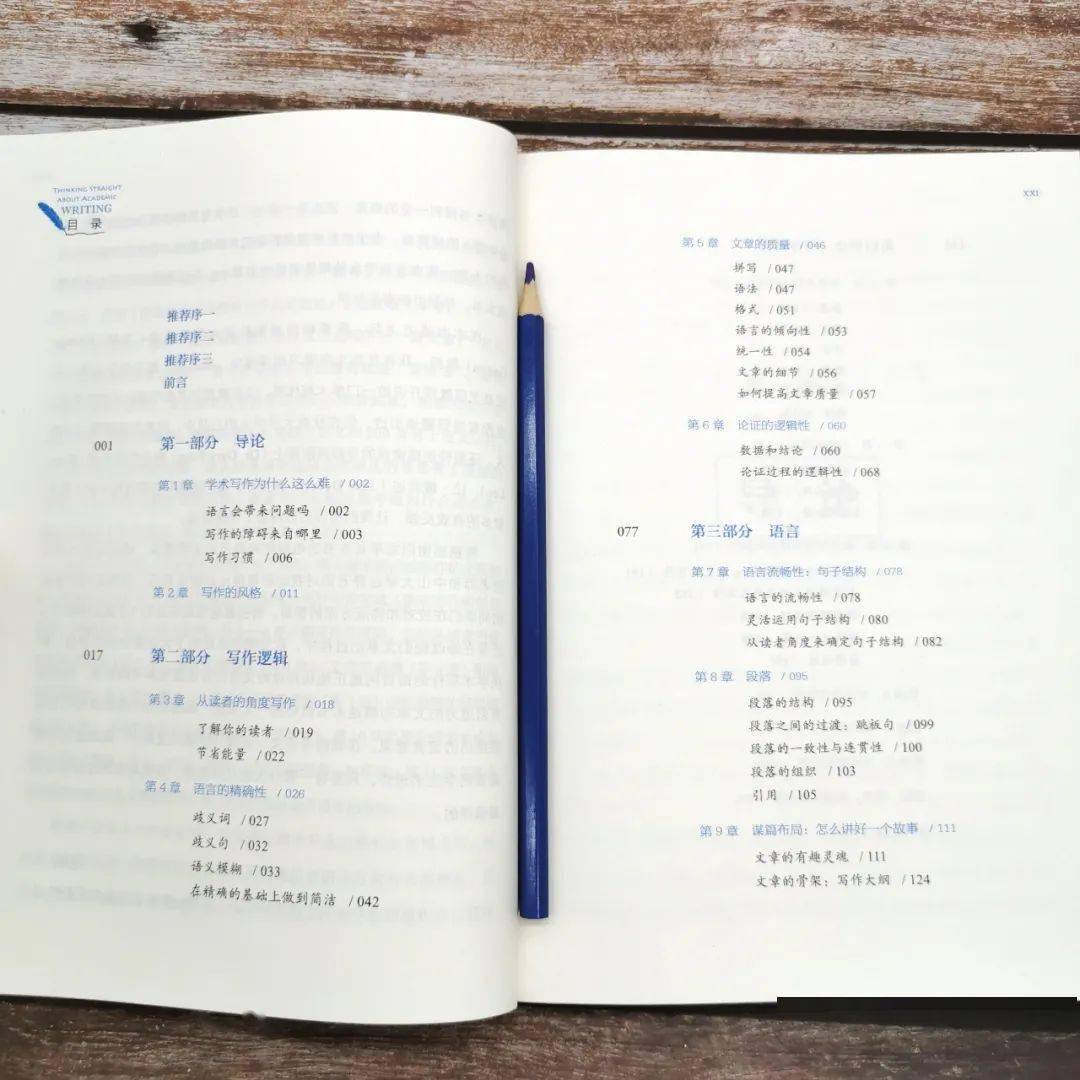 THINKING STRAIGHT
ABOUT ACADEMIC
WRITING
目 录
推荐序一
推荐序二
推荐序三
前言
001 第一部分 导论
第1章 学术写作为什么这么难 / 002
语言会带来问题吗 / 002
写作的障碍来自哪里 / 003
写作习惯 / 006
第2章 写作的风格 / 011
017 第二部分 写作逻辑
第3章 从读者的角度写作 / 018
了解你的读者 / 019
节省能量 / 022
第4章 语言的精确性 / 026
歧义词 / 027
歧义句 / 032
语义模糊 / 033
在精确的基础上做到简洁 / 042
XXI
第5章 文章的质量 / 046
拼写 / 047
语法 / 047
格式 / 051
语言的倾向性 / 053
统一性 / 054
文章的细节 / 056
如何提高文章质量 / 057
第6章 论证的逻辑性 / 060
数据和结论 / 060
论证过程的逻辑性 / 068
077 第三部分 语言
第7章 语言流畅性：句子结构 / 078
语言的流畅性 / 078
灵活运用句子结构 / 080
从读者角度来确定句子结构 / 082
第8章 段落 / 095
段落的结构 / 095
段落之间的过渡：跳板句 / 099
段落的一致性与连贯性 / 100
段落的组织 / 103
引用 / 105
第9章 谋篇布局：怎么讲好一个故事 / 111
文章的有趣灵魂 / 111
文章的骨架：写作大纲 / 124